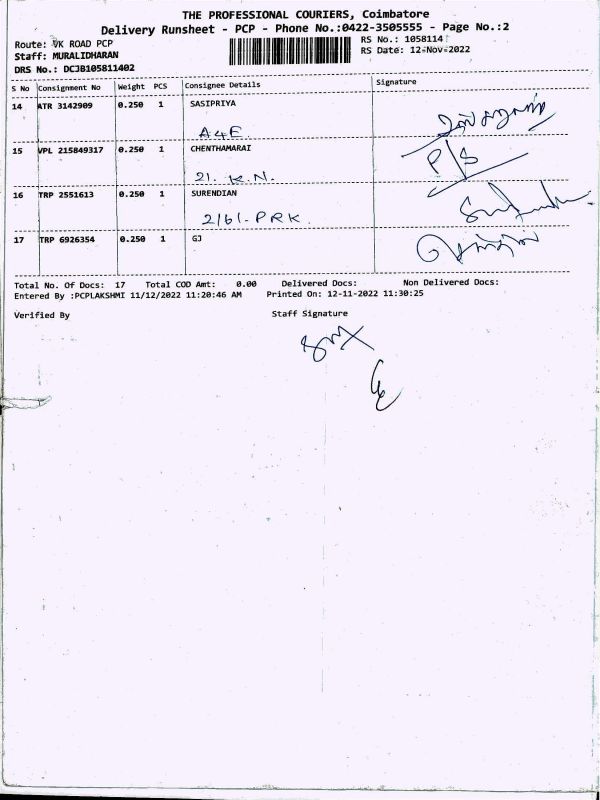 THE PROFESSIONAL COURIERS, Coimbatore
Delivery Runsheet - PCP - Phone No.:0422-3505555 - Page No.:2
Route: VK ROAD PCP
RS No.: 1058114
Staff: MURALIDHARAN
RS Date: 12-Nov-2022
DRS No.: DCJB105811402
S No Consignment No Weight PCS Consignee Details Signature
14 ATR 3142909 0.250 1 SASIPRIYA
A4E
15 VPL 215849317 0.250 1 CHENTHAMARAI
21. K.N.
P/S
16 TRP 2551613 0.250 1 SURENDIAN
2161-PRK.
17 TRP 6926354 0.250 1 GJ
Total No. Of Docs: 17 Total COD Amt: 0.00 Delivered Docs: Non Delivered Docs:
Entered By :PCPLAKSHMI 11/12/2022 11:20:46 AM Printed On: 12-11-2022 11:30:25
Verified By Staff Signature